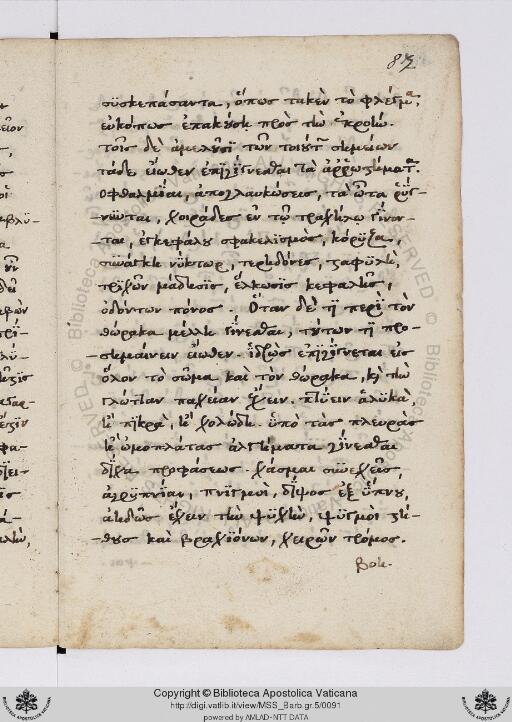 83
συσκεπάσαντα, ὅπως τακὲν τὸ φλέγμα,
εὐκόπως ἐπακούσῃ πρὸς τὴν ἔκροιαν.
τοῖς δὲ ἀμελοῦσι τῶν τοιούτ σημείων
τάδε εἴωθεν ἐπιγίνεσθαι τὰ ἀρρωστήματα.
ὀφθαλμίαι, ἀπογλαυκώσεις, τὰ ὦτα ῥήγ-
-νυνται, χοιράδες ἐν τῷ τραχήλῳ γίνον-
-ται, ἐγκεφάλου σφακελισμὸς, κόρυζα,
συνάγκη νύκτωρ, τερηδόνες, σταφυλὴ,
τριχῶν μάδησις, ἕλκωσις κεφαλῆς,
ὀδόντων πόνος. Ὅταν δέ τι περὶ τὸν
θώρακα μέλλῃ γίνεσθαι, τούτων τι προ-
-σημαίνειν εἴωθεν. ἱδρὼς ἐπιγίνεται εἰς
ὅλον τὸ σῶμα καὶ τὸν θώρακα, κὶ τὴν
γλῶτταν παχεῖαν ἔχειν. πτύειν ἁλυκὰ,
ἢ πικρὰ, ἢ χολώδη. ὑπὸ τὰς πλευρὰς
ἢ ὠμοπλάτας ἀλγήματα γίνεσθαι
δίχα προφάσεως. χάσμαι συνεχεῖς,
ἀγρυπνίαι, πνιγμοὶ, δίψος ἐξ ὕπνου,
ἀηδῶς ἔχειν τὴν ψυχὴν, ψυγμοὶ στή-
-θους καὶ βραχιόνων, χειρῶν τρόμος.
Copyright © Biblioteca Apostolica Vaticana
http://digi.vatlib.it/view/MSS_Barb.gr.5/0091
powered by AMLAD-NTT DATA